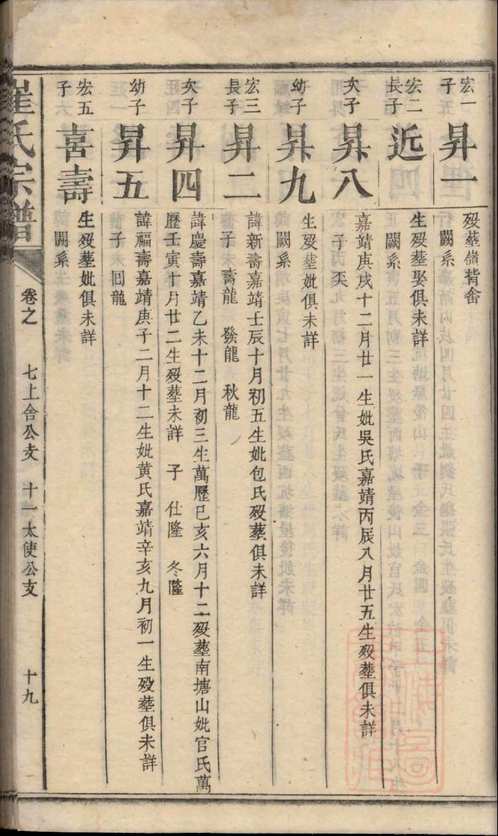 宏一
子
昇一
歿塟嶺背舍
闕系
宏二
長子
近
生歿塟娶俱未詳
闕系
次子
昇八
嘉靖庚戌十二月廿一生妣吳氏嘉靖丙辰八月廿五生歿塟俱未詳
子 天
幼子
昇九
生歿塟妣俱未詳
闕系
宏三
長子
昇二
諱新壽嘉靖壬辰十月初五生妣包氏歿塟俱未詳
子 壽龍 發龍 秋龍
次子
昇四
諱慶壽嘉靖乙未十二月初三生萬歷己亥六月十二歿塟南塘山妣官氏萬
歷壬寅十月廿二生歿塟未詳 子 仕隆 冬隆
幼子
昇五
諱福壽嘉靖庚子二月十二生妣黃氏嘉靖辛亥九月初一生歿塟俱未詳
子 回龍
宏五
子
喜壽
生歿塟妣俱未詳
闕系
崔氏宗譜
卷之 七上舍公支 十一太使公支 十九